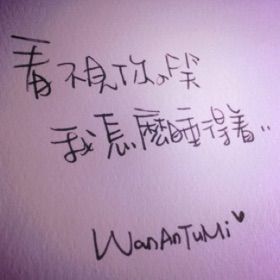 看不見你的笑
我怎麼睡得着..
WanAnTuMi♥